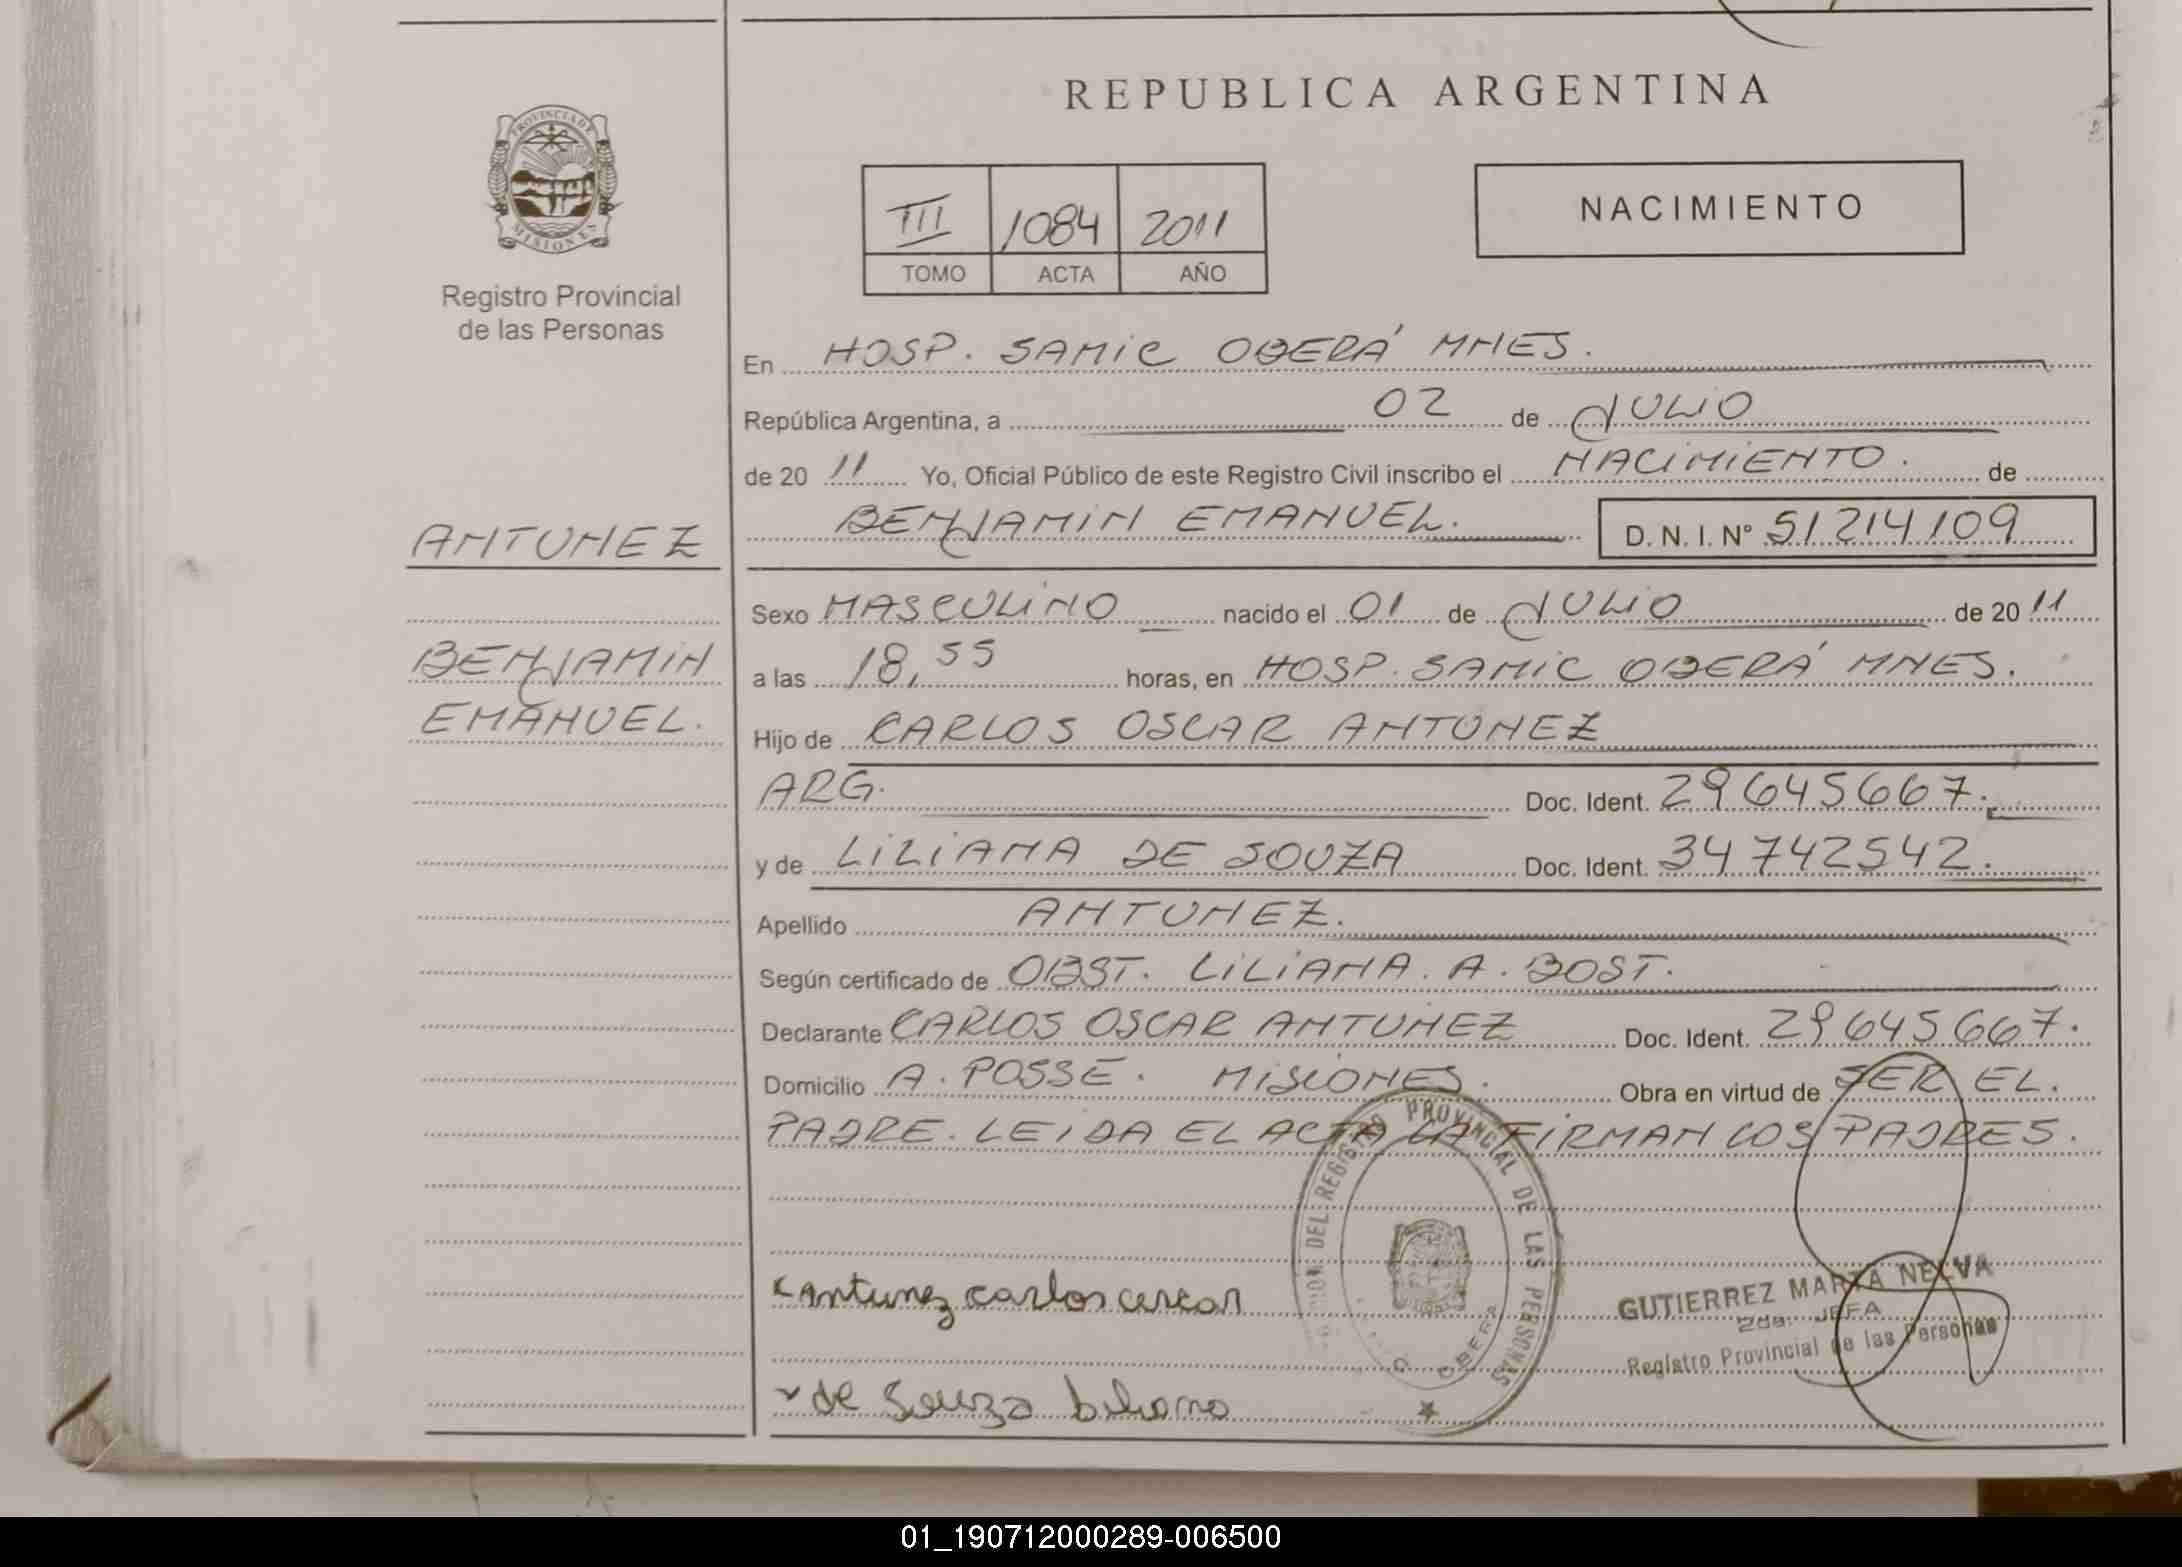 REPUBLICA ARGENTINA
PROVINCIA DE
MISIONES
Registro Provincial
de las Personas
III 1084 2011
TOMO ACTA AÑO
NACIMIENTO
En HOSP. SAMIC OBERÁ MNES.
República Argentina, a 02 de JULIO
de 20 11 Yo, Oficial Público de este Registro Civil inscribo el NACIMIENTO. de
ANTUNEZ
BENJAMIN EMANUEL. D. N. I. N° 51214109
Sexo MASCULINO nacido el 01 de JULIO de 20 11
BENJAMIN
EMANUEL.
a las 18,55 horas, en HOSP. SAMIC OBERÁ MNES.
Hijo de CARLOS OSCAR ANTUNEZ
ARG. Doc. Ident. 29645667.
y de LILIANA DE SOUZA Doc. Ident. 34742542.
Apellido ANTUNEZ.
Según certificado de OBST. LILIANA. A. BOST.
Declarante CARLOS OSCAR ANTUNEZ Doc. Ident. 29645667.
Domicilio A. POSSE. MISIONES. Obra en virtud de SER EL.
PADRE. LEIDA EL ACTA LA FIRMAN LOS PADRES.
DEL REGISTRO PROVINCIAL DE LAS PERSONAS
OBERA
Antunez carlos oscar
GUTIERREZ MARTA NELVA
2da. JEFA
Registro Provincial de las Personas
de Souza liliana
01_190712000289-006500